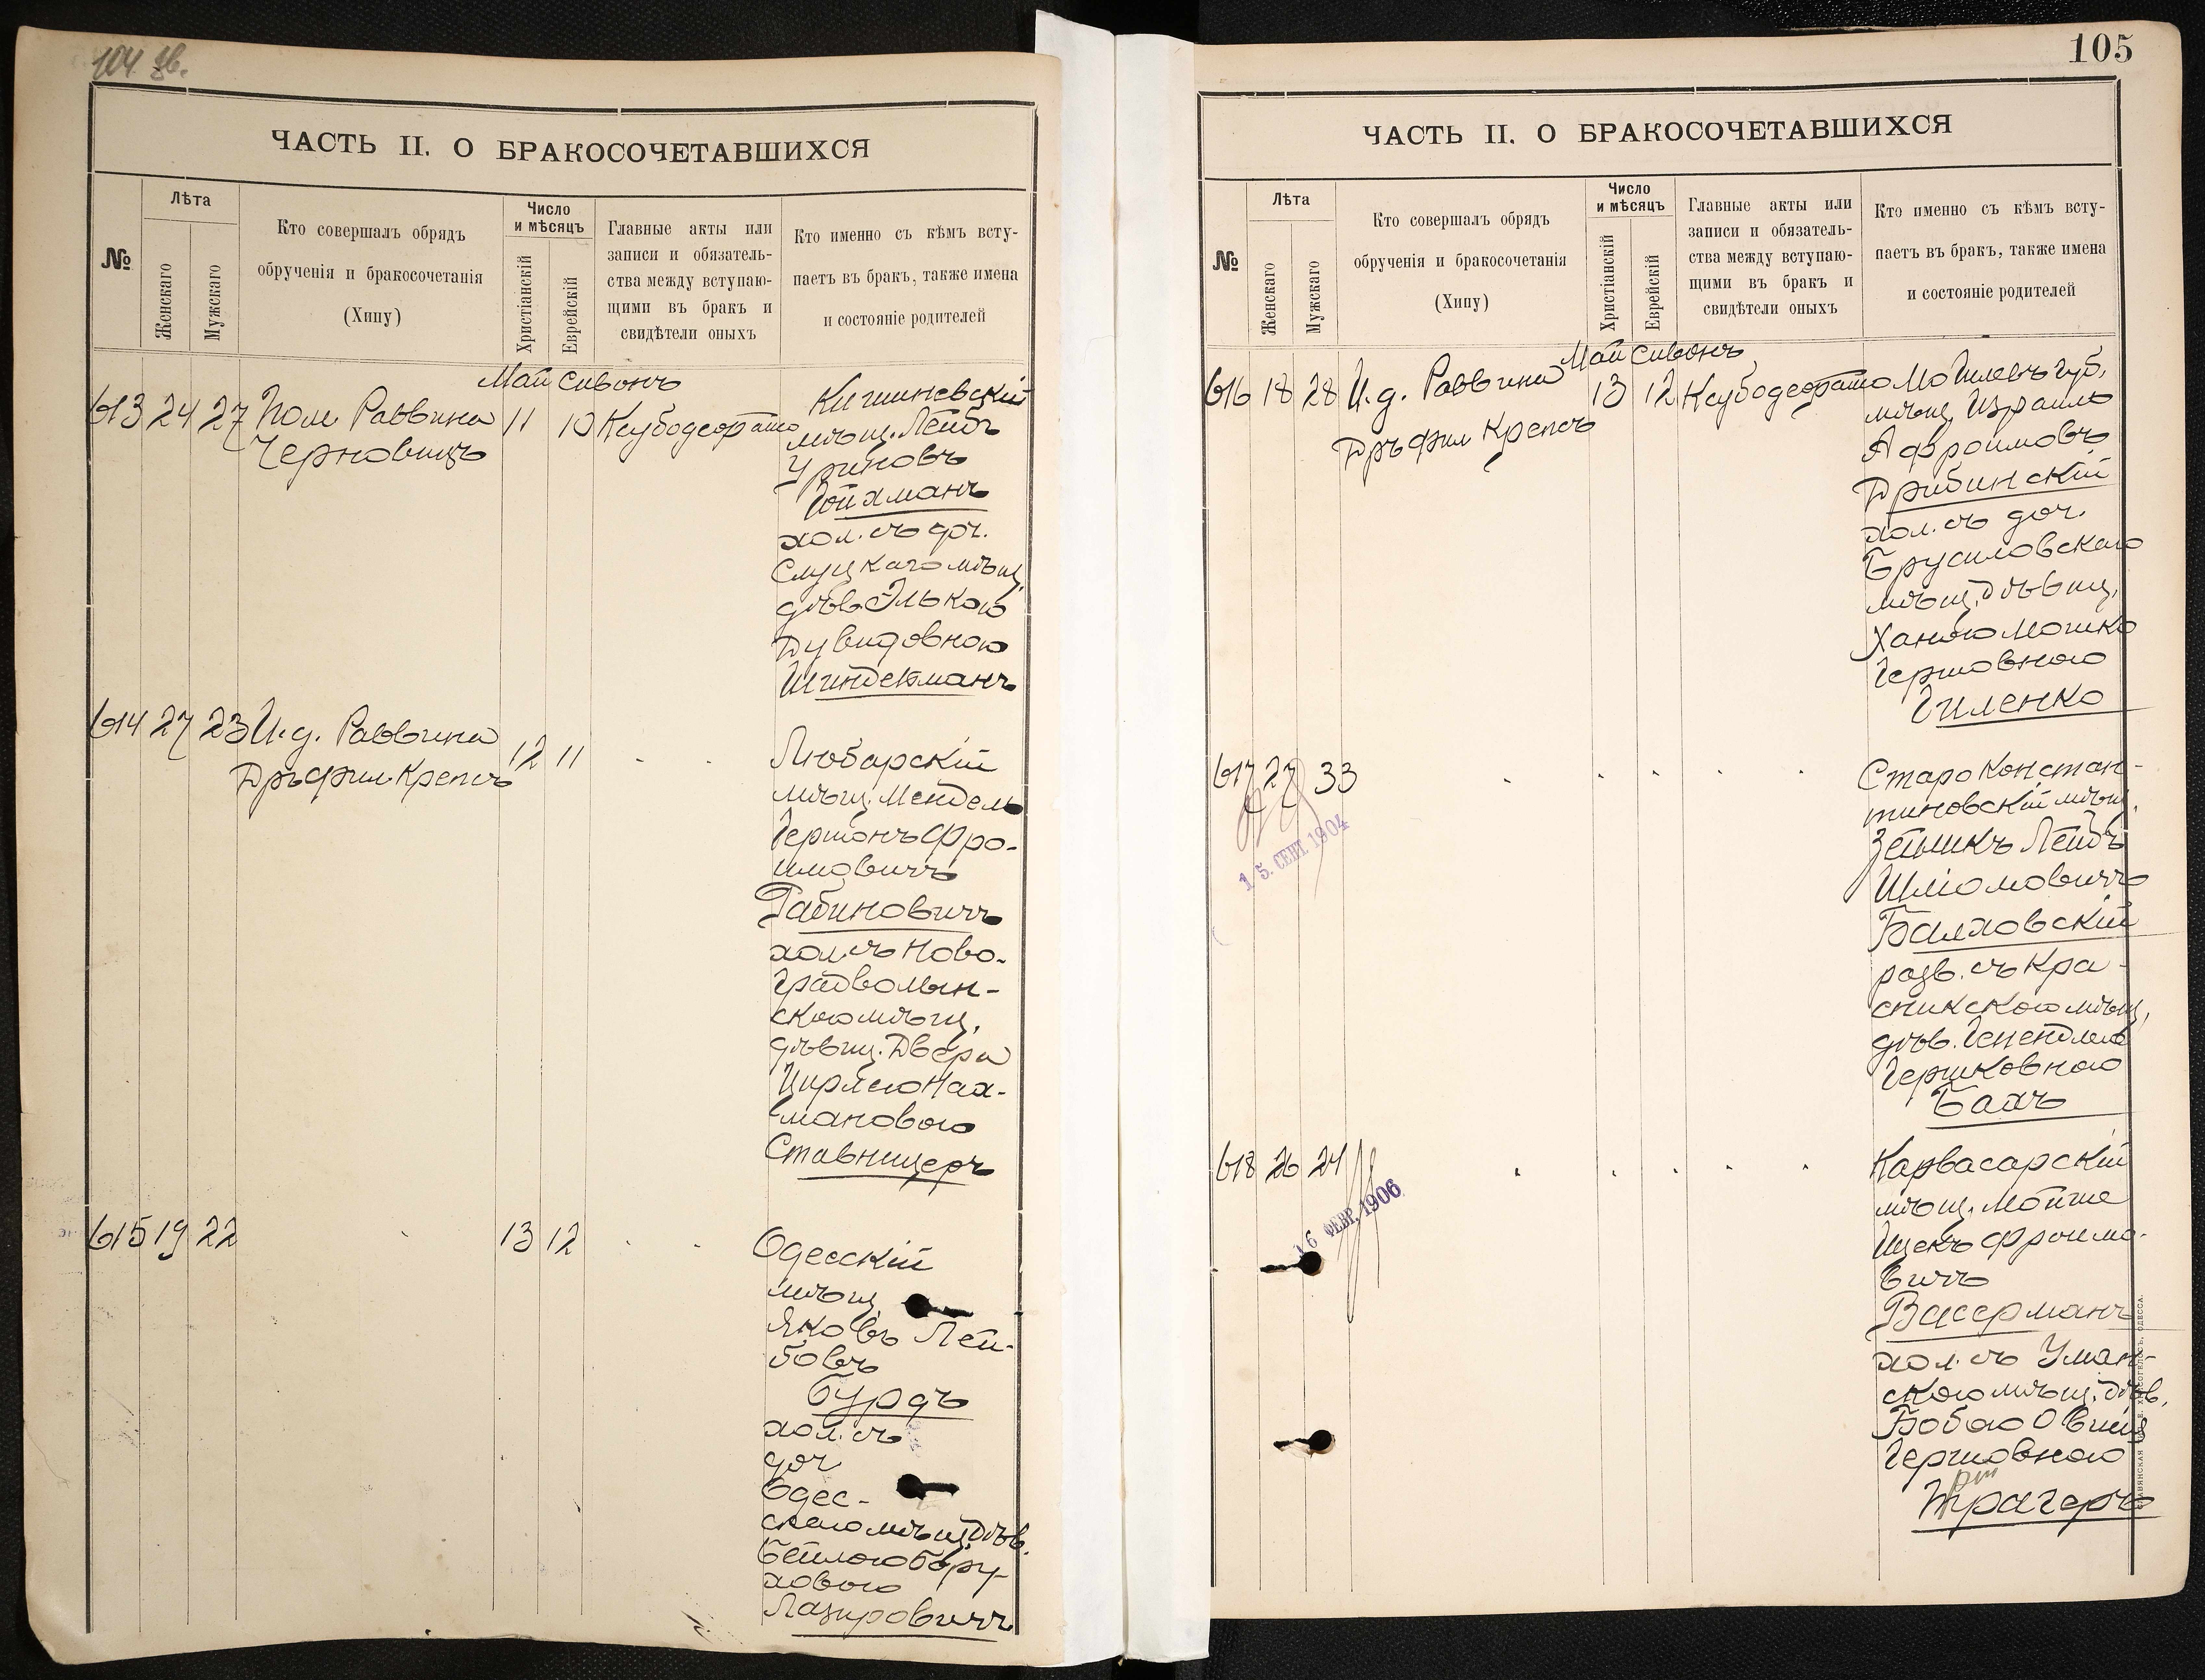 104 зв.
ЧАСТЬ II. О БРАКОСОЧЕТАВШИХСЯ
№
Лѣта
Женскаго
Мужскаго
Кто совершалъ обрядъ
обрученія и бракосочетанія
(Хипу)
Число
и мѣсяцъ
Христіанскій
Еврейскій
Главные акты или
записи и обязатель-
ства между вступаю-
щими въ бракъ и
свидѣтели оныхъ
Кто именно съ кѣмъ всту-
паетъ въ бракъ, также имена
и состояніе родителей
Май Сивонъ
613 24 27 Пом Раввина 11 10
Черновицъ
Кишиневскій
мѣщ. Лейбъ
Уриновъ
Гойхманъ
хол. съ доч.
Слуцкаго мѣщ.
дѣв. Элькою
Дувидовною
Шиндельманъ
614 27 23 И.д. Раввина 12 11
Дръ фил. Крепсъ
Любарскій
мѣщ. Мендель
Гершонъ Фро-
имовичъ
Рабиновичъ
хол. съ Ново-
градволын-
скою мѣщ.
дѣвиц. Двера
Цирлею Нах-
мановою
Ставницеръ
615 19 22 13 12
Одесскій
мѣщ.
Яковъ Лей-
бовъ
Бурдъ
хол. съ
доч
Одес-
скаго мѣщ дѣв.
Бейлою Бору-
ховою
Лазировичъ
105
ЧАСТЬ II. О БРАКОСОЧЕТАВШИХСЯ
№
Лѣта
Женскаго
Мужскаго
Кто совершалъ обрядъ
обрученія и бракосочетанія
(Хипу)
Число
и мѣсяцъ
Христіанскій
Еврейскій
Главные акты или
записи и обязатель-
ства между вступаю-
щими въ бракъ и
свидѣтели оныхъ
Кто именно съ кѣмъ всту-
паетъ въ бракъ, также имена
и состояніе родителей
Май Сивонъ
616 18 28 И.д. Раввина 13 12
Дръ фил Крепсъ
Могилевъ губ.
мѣщ. Израиль
Афроимовъ
Дрибинскій
хол. съ доч.
Брусиловскаго
мѣщ. дѣвиц.
Ханою Мошко
Гершовною
Гиленко
617 27 33
15. СЕНТ. 1904
Старо Констан-
тиновскій мѣщ.
Зельикъ Лейбъ
Шліомовичъ
Балховскій
разв. съ Кра-
сникскою мѣщ.
дѣв. Генендлею
Гершковною
Бахъ
618 26 24
16 ФЕВР. 1906
Карвасарскій
мѣщ. Мойше
Ицекъ Фроимо-
вичъ
Васерманъ
хол. съ Уман-
скою мѣщ. дѣв.
Бобою
Гершовною
Трагеръ